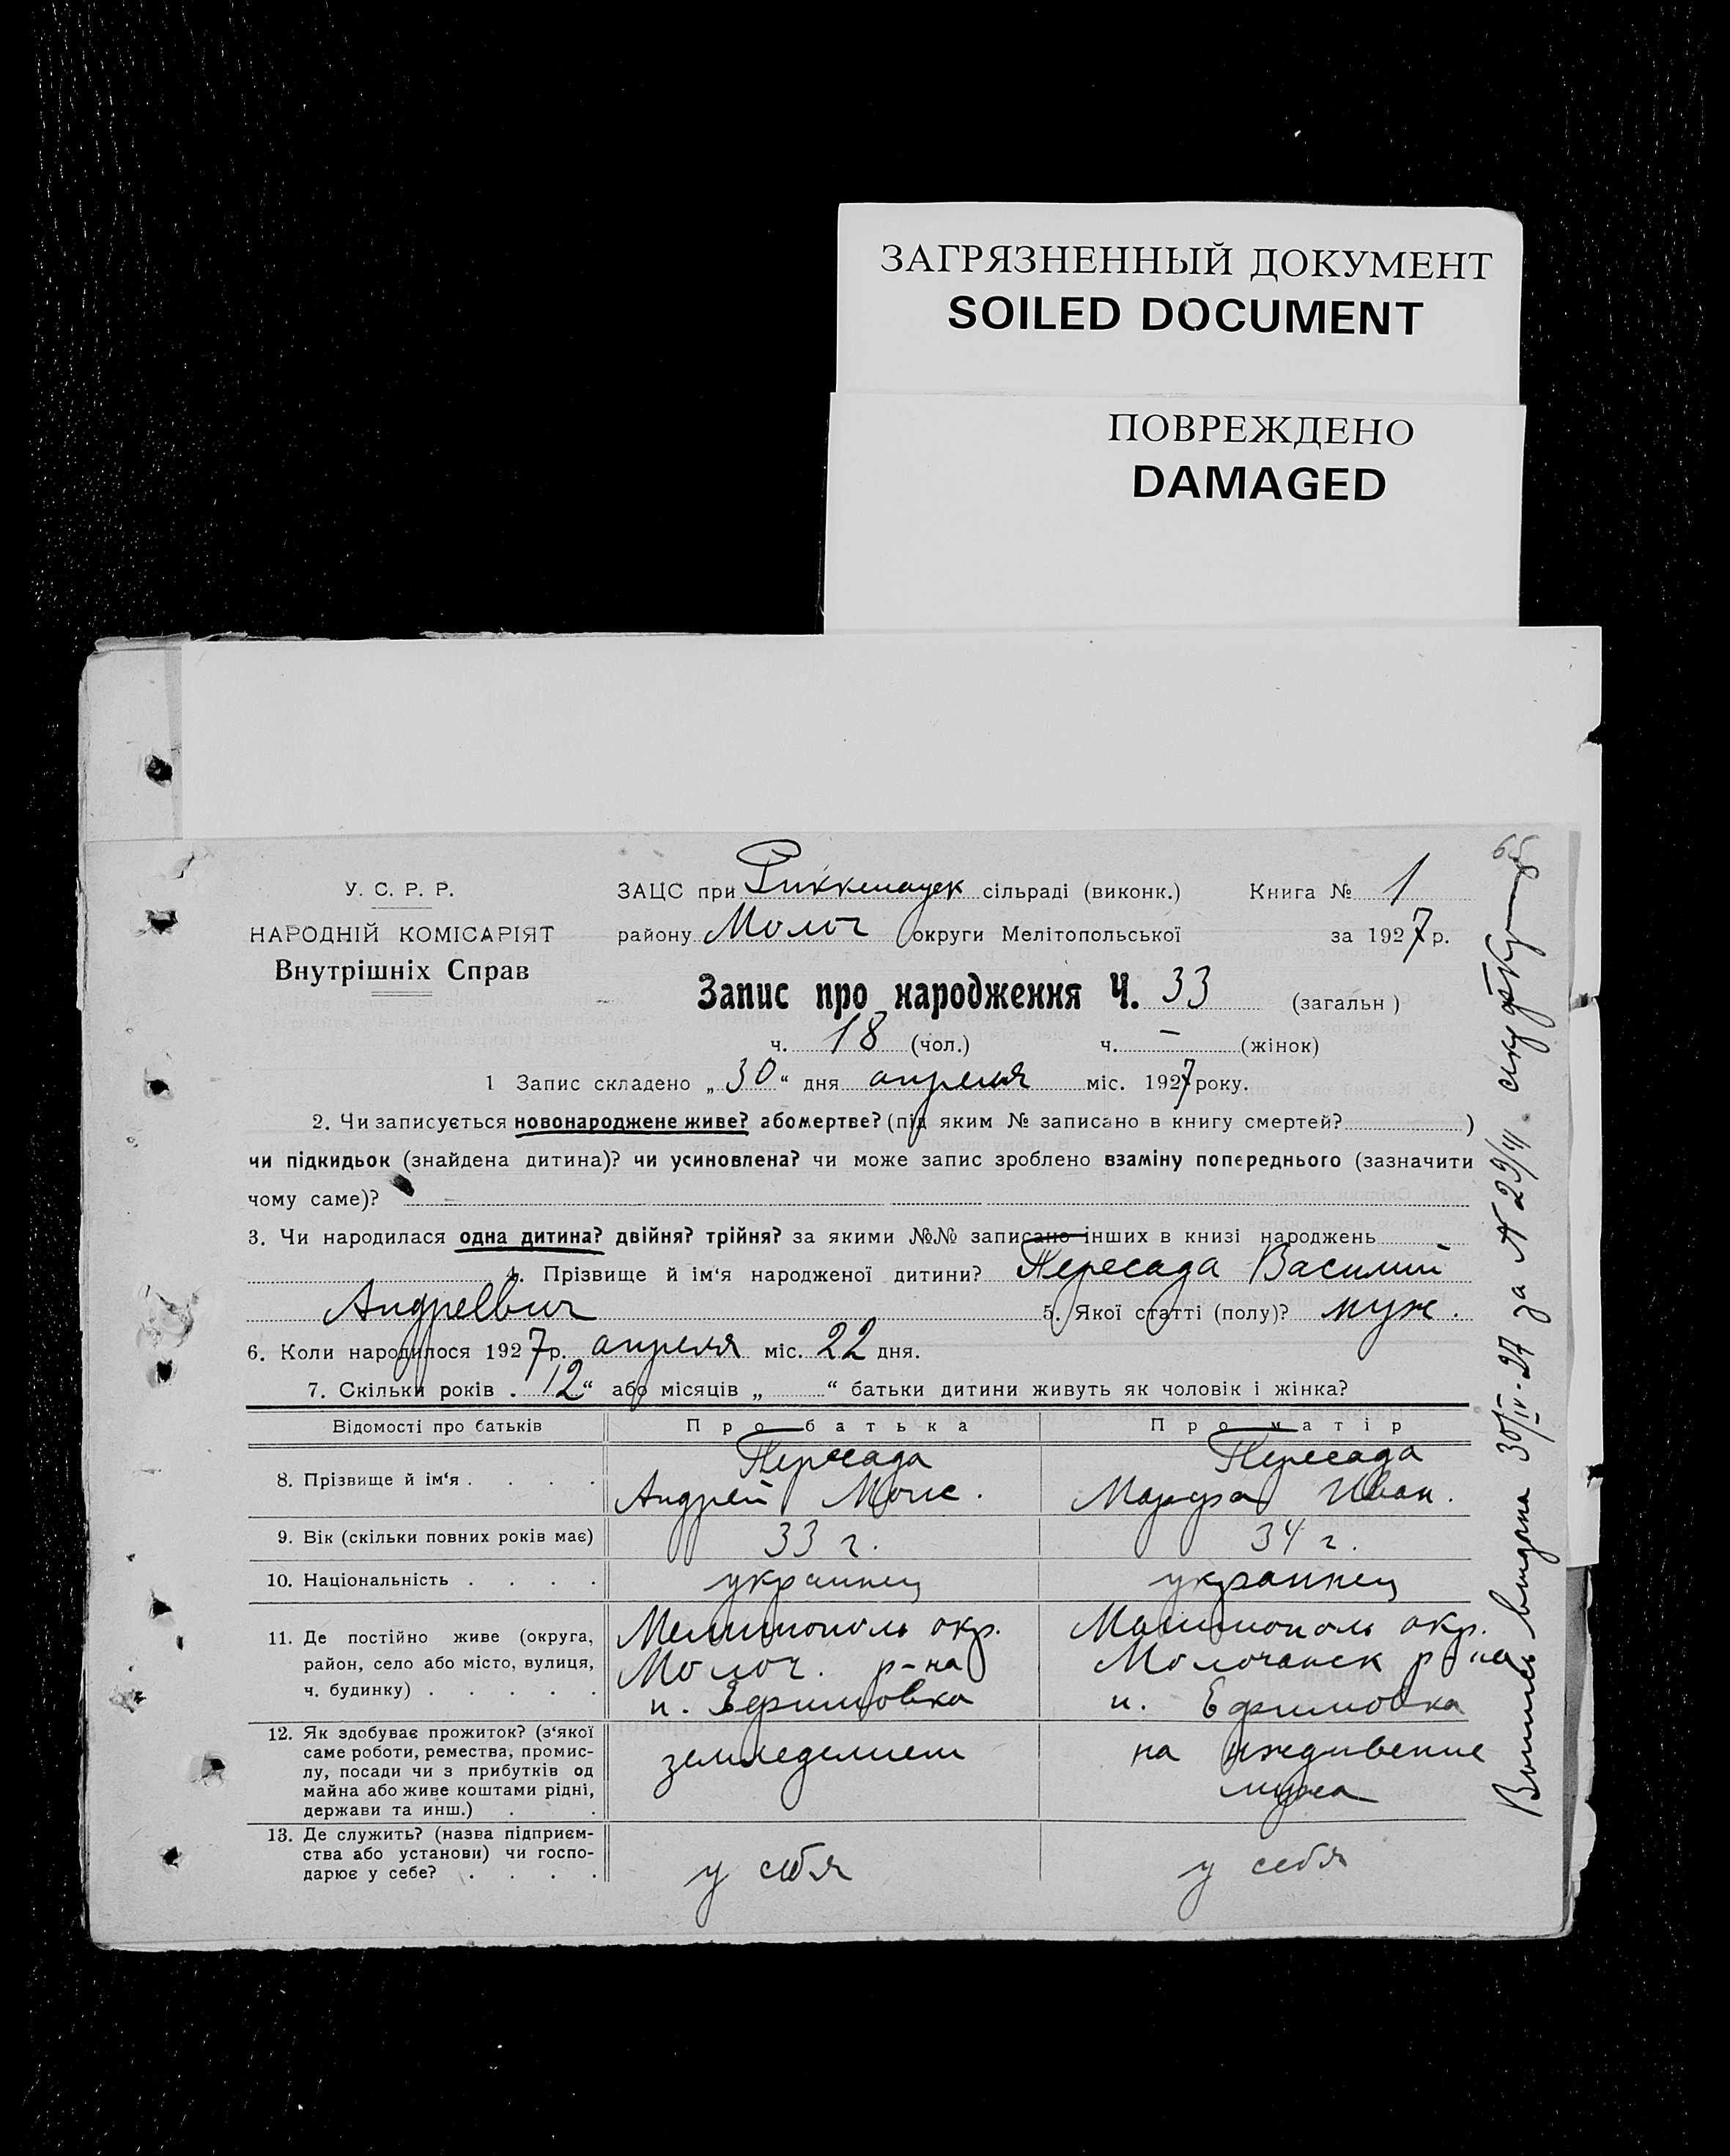 ЗАГРЯЗНЕННЫЙ ДОКУМЕНТ
SOILED DOCUMENT
ПОВРЕЖДЕНО
DAMAGED
У. С. Р. Р.
НАРОДНІЙ КОМІСАРІЯТ
Внутрішніх Справ
ЗАЦС при Риккенауек сільраді (виконк.) Книга № 1
району Молоч округи Мелітопольської за 1927 р.
Запис про народження Ч. 33 (загальн)
ч. 18 (чол.) ч. — (жінок)
1 Запис складено „30“ дня апреля міс. 1927 року.
2. Чи записується новонароджене живе? або мертве? (під яким № записано в книгу смертей? )
чи підкидьок (знайдена дитина)? чи усиновлена? чи може запис зроблено взаміну попереднього (зазначити
чому саме)?
3. Чи народилася одна дитина? двійня? трійня? за якими №№ записано інших в книзі народжень
4. Прізвище й ім‘я народженої дитини? Пересада Василий
Андреевич 5. Якої статті (полу)? муж.
6. Коли народилося 1927 р. апреля міс. 22 дня.
7. Скільки років . 12“ або місяців „ “ батьки дитини живуть як чоловік і жінка?
Відомості про батьків Про батька Про матір
8. Прізвище й ім‘я . . . . Пересада Пересада
Андрей Моис. Марфа Иван.
9. Вік (скільки повних років має) 33 г. 34 г.
10. Національність . . . . украинец украинец
11. Де постійно живе (округа,
район, село або місто, вулиця,
ч. будинку) . . . . .
Мелитополь окр.
Молоч. р-на
п. Ефимовка
Мелитополь окр.
Молочанск р-на
п. Ефимовка
12. Як здобуває прожиток? (з‘якої
саме роботи, ремества, промис-
лу, посади чи з прибутків од
майна або живе коштами рідні,
держави та инш.) . .
земледелием
на иждивение
мужа
13. Де служить? (назва підприєм-
ства або установи) чи госпо-
дарює у себе? . . . .
у себя
у себя
Выпись выдана 30/IV-27 за №